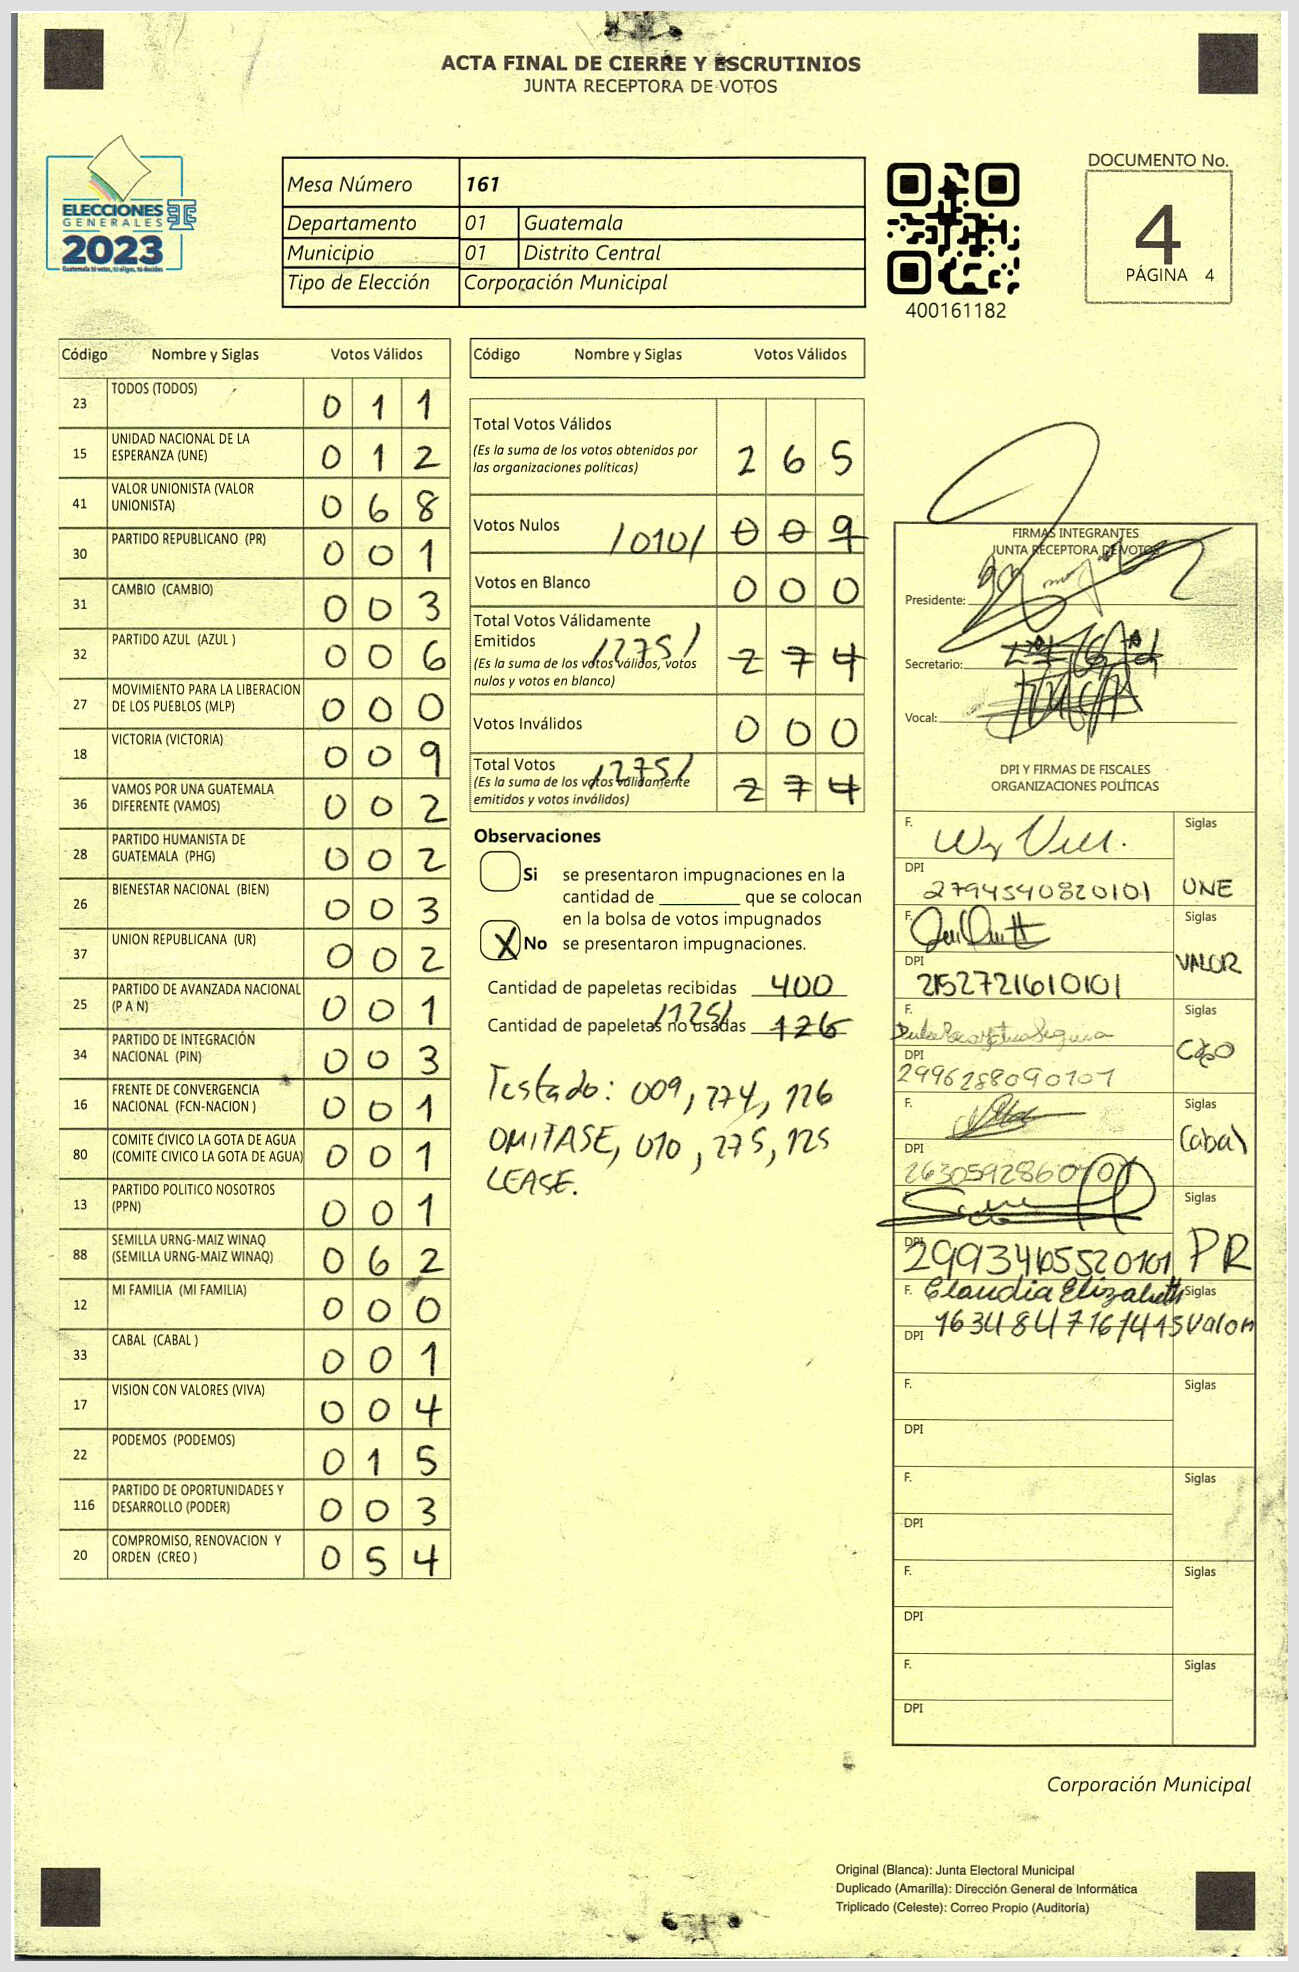 ACTA FINAL DE CIERRE Y ESCRUTINIOS
JUNTA RECEPTORA DE VOTOS
ELECCIONES
GENERALES
2023
Guatemala tú votas, tú eliges, tú decides
Mesa Número 161
Departamento 01 Guatemala
Municipio 01 Distrito Central
Tipo de Elección Corporación Municipal
400161182
DOCUMENTO No.
4
PÁGINA 4
Código Nombre y Siglas Votos Válidos
23 TODOS (TODOS) 0 1 1
15 UNIDAD NACIONAL DE LA ESPERANZA (UNE) 0 1 2
41 VALOR UNIONISTA (VALOR UNIONISTA) 0 6 8
30 PARTIDO REPUBLICANO (PR) 0 0 1
31 CAMBIO (CAMBIO) 0 0 3
32 PARTIDO AZUL (AZUL ) 0 0 6
27 MOVIMIENTO PARA LA LIBERACION DE LOS PUEBLOS (MLP) 0 0 0
18 VICTORIA (VICTORIA) 0 0 9
36 VAMOS POR UNA GUATEMALA DIFERENTE (VAMOS) 0 0 2
28 PARTIDO HUMANISTA DE GUATEMALA (PHG) 0 0 2
26 BIENESTAR NACIONAL (BIEN) 0 0 3
37 UNION REPUBLICANA (UR) 0 0 2
25 PARTIDO DE AVANZADA NACIONAL (P A N) 0 0 1
34 PARTIDO DE INTEGRACIÓN NACIONAL (PIN) 0 0 3
16 FRENTE DE CONVERGENCIA NACIONAL (FCN-NACION ) 0 0 1
80 COMITE CÍVICO LA GOTA DE AGUA (COMITE CIVICO LA GOTA DE AGUA) 0 0 1
13 PARTIDO POLITICO NOSOTROS (PPN) 0 0 1
88 SEMILLA URNG-MAIZ WINAQ (SEMILLA URNG-MAIZ WINAQ) 0 6 2
12 MI FAMILIA (MI FAMILIA) 0 0 0
33 CABAL (CABAL ) 0 0 1
17 VISION CON VALORES (VIVA) 0 0 4
22 PODEMOS (PODEMOS) 0 1 5
116 PARTIDO DE OPORTUNIDADES Y DESARROLLO (PODER) 0 0 3
20 COMPROMISO, RENOVACION Y ORDEN (CREO ) 0 5 4
Código Nombre y Siglas Votos Válidos
Total Votos Válidos
(Es la suma de los votos obtenidos por
las organizaciones políticas) 2 6 5
Votos Nulos /010/ 0 0 9
Votos en Blanco 0 0 0
Total Votos Válidamente
Emitidos /275/
(Es la suma de los votos válidos, votos
nulos y votos en blanco) 2 7 4
Votos Inválidos 0 0 0
Total Votos /275/
(Es la suma de los votos válidamente
emitidos y votos inválidos) 2 7 4
Observaciones
Si se presentaron impugnaciones en la
cantidad de ________ que se colocan
en la bolsa de votos impugnados
X No se presentaron impugnaciones.
Cantidad de papeletas recibidas 400
Cantidad de papeletas no usadas /125/ 126
Testado: 009, 274, 126
OMITASE, 010, 275, 125
LEASE.
FIRMAS INTEGRANTES
JUNTA RECEPTORA DE VOTOS
Presidente:
Secretario:
Vocal:
DPI Y FIRMAS DE FISCALES
ORGANIZACIONES POLÍTICAS
F. Siglas
DPI 2794540820101 UNE
F. Siglas
DPI 2152721610101 VALOR
F. Siglas
DPI 2996288090101
F. Siglas
DPI 2630592860101 Cabal
F. Siglas
DPI 2993465520101 PR
F. Claudia Elizabeth Siglas
DPI 1634847161415 Valor
F. Siglas
DPI
F. Siglas
DPI
F. Siglas
DPI
F. Siglas
DPI
Corporación Municipal
Original (Blanca): Junta Electoral Municipal
Duplicado (Amarilla): Dirección General de Informática
Triplicado (Celeste): Correo Propio (Auditoría)